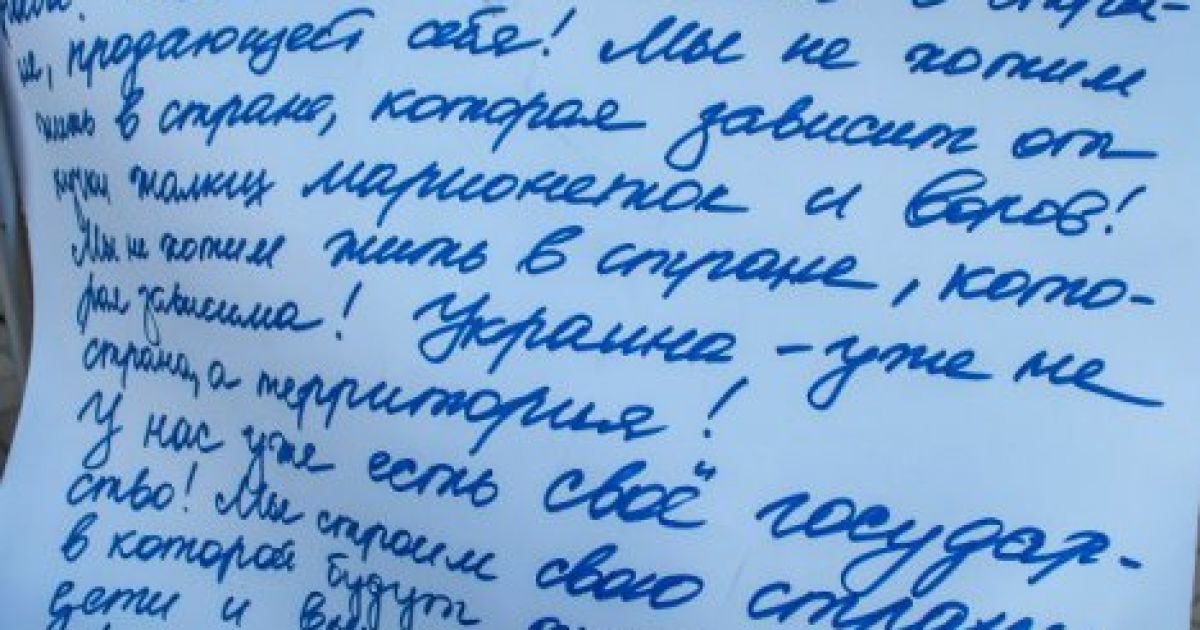 не, продающей себя! Мы не хотим
жить в стране, которая зависит от
кучки жалких марионеток и воров!
Мы не хотим жить в стране, кото-
рая зависима! Украина - уже не
страна, а территория!
У нас уже есть своё государ-
ство! Мы строим свою страну
в которой будут
дети и